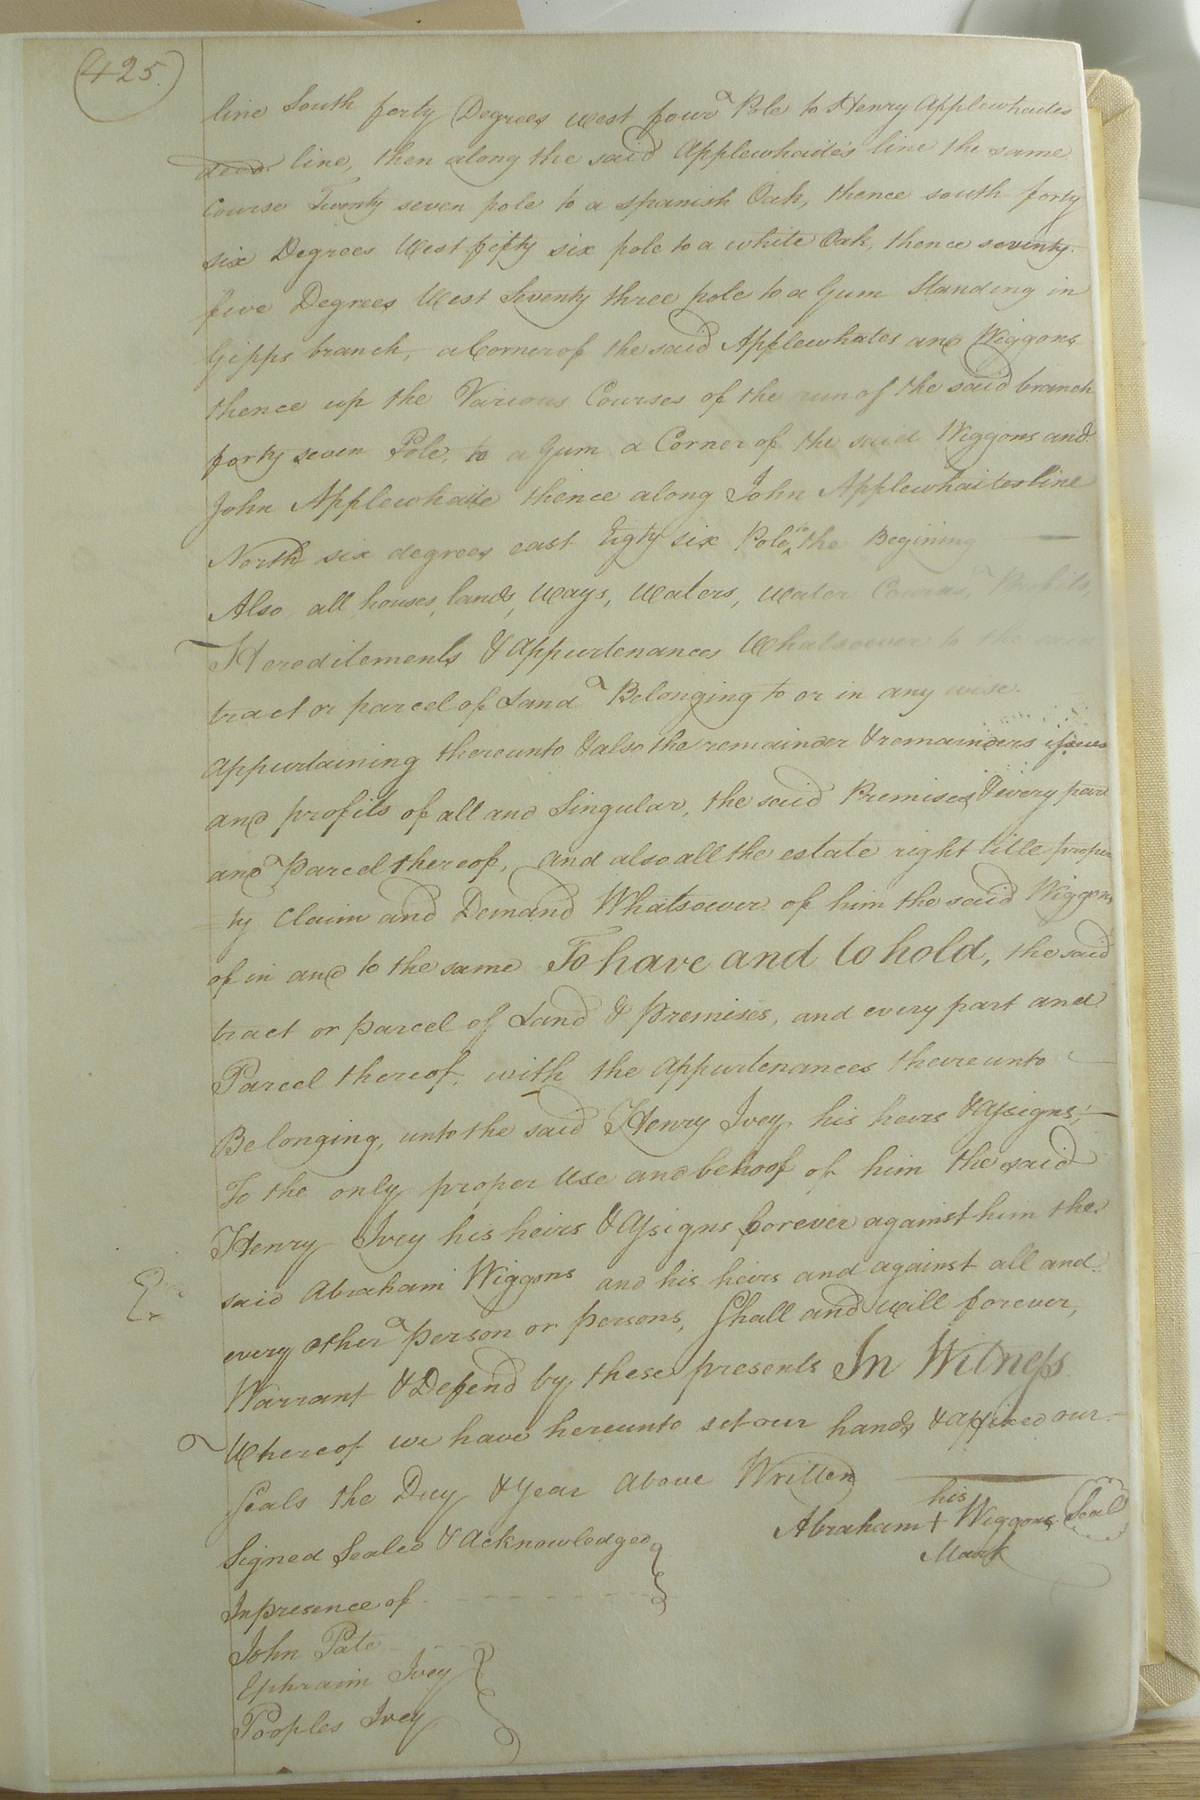 425.
line South forty Degrees west four Pole to Henry Applewhaites
line, then along the said Applewhaite's line the same
Course Twenty seven pole to a spanish Oak, thence south forty
six Degrees West fifty six pole to a white Oak, thence seventy
five Degrees West Seventy three pole to a Gum Standing in
Gipps branch, a Corner of the said Applewhates and Wiggons
thence up the Various Courses of the run of the said branch
forty seven Pole, to a Gum a Corner of the said Wiggons and
John Applewhaite thence along John Applewhaites line
North six degrees east Eigty six Pole to the Begining
Also all houses, lands, Ways, Waters, Water Courses, Profits,
Hereditements & Appurtenances Whatsoever to the
tract or parcel of Land Belonging to or in any wise
appurtaining thereunto & also the remainder & remainders issues
and profits of all and Singular, the said Premises & every part
and Parcel thereof, and also all the estate right title proper
ty Claim and Demand Whatsoever of him the said Wiggons
of in and to the same To have and to hold, the said
tract or parcel of Land & Premises, and every part and
Parcel thereof, with the appurtenances thereunto
Belonging, unto the said Henry Ivey his heirs & Assigns,
To the only proper use and behoof of him the said
Henry Ivey his heirs & Assigns forever against him the
said Abraham Wiggons and his heirs and against all and
every other person or persons, Shall and will forever,
Warrant & Defend by these presents In Witness
Whereof we have hereunto set our hands & affixed our
Seals the Day & Year Above Written
his
Abraham + Wiggons Seal
Mark
Signed Sealed & Acknowledged
In presence of
John Pate
Ephraim Ivey
Peoples Ivey